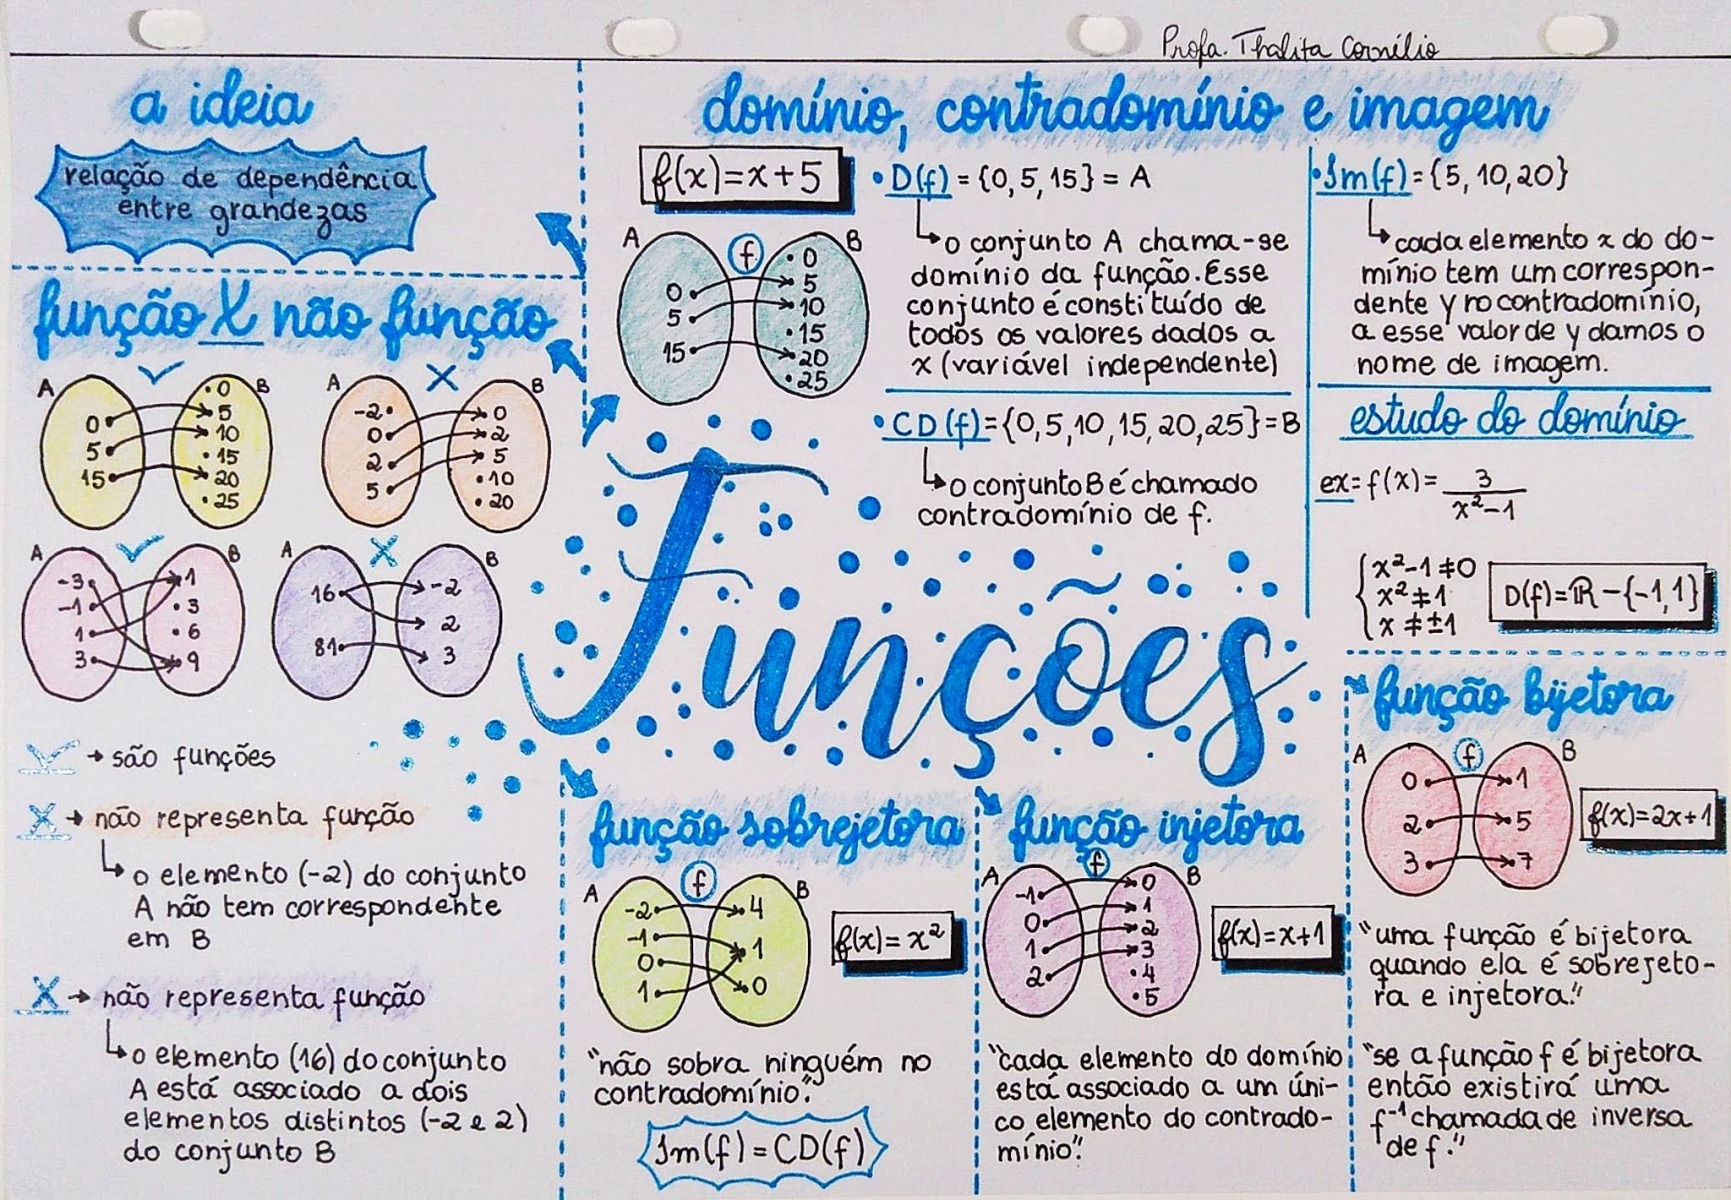 Profa. Thalita Cornélio
a ideia
relação de dependência
entre grandezas
função X não função
A
B
0
5
15
0
5
10
15
20
25
A
B
-2
0
2
5
0
2
5
10
20
A
B
-3
-1
1
3
1
3
6
9
A
B
16
81
-2
2
3
→ são funções
X → não representa função
o elemento (-2) do conjunto
A não tem correspondente
em B
X → não representa função
o elemento (16) do conjunto
A está associado a dois
elementos distintos (-2 e 2)
do conjunto B
domínio, contradomínio e imagem
f(x)=x+5
A
f
B
0
5
15
0
5
10
15
20
25
• D(f) = {0, 5, 15} = A
o conjunto A chama-se
domínio da função. Esse
conjunto é constituído de
todos os valores dados a
x (variável independente)
• CD(f)={0,5,10,15,20,25}=B
o conjunto B é chamado
contradomínio de f.
• Im(f)={5, 10, 20}
cada elemento x do do-
mínio tem um correspon-
dente y no contradomínio,
a esse valor de y damos o
nome de imagem.
estudo do domínio
ex: f(x)= 3
x²-1
x²-1≠0
x²≠1
x≠±1
D(f)=ℝ-{-1,1}
Funções
função sobrejetora
A
f
B
-2
-1
0
1
4
1
0
f(x)= x²
"não sobra ninguém no
contradomínio."
Im(f)=CD(f)
função injetora
A
f
B
-1
0
1
2
0
1
2
3
4
5
f(x)=x+1
"cada elemento do domínio
está associado a um úni-
co elemento do contrado-
mínio."
função bijetora
A
f
B
0
2
3
1
5
7
f(x)=2x+1
"uma função é bijetora
quando ela é sobrejeto-
ra e injetora."
"se a função f é bijetora
então existirá uma
f⁻¹ chamada de inversa
de f."